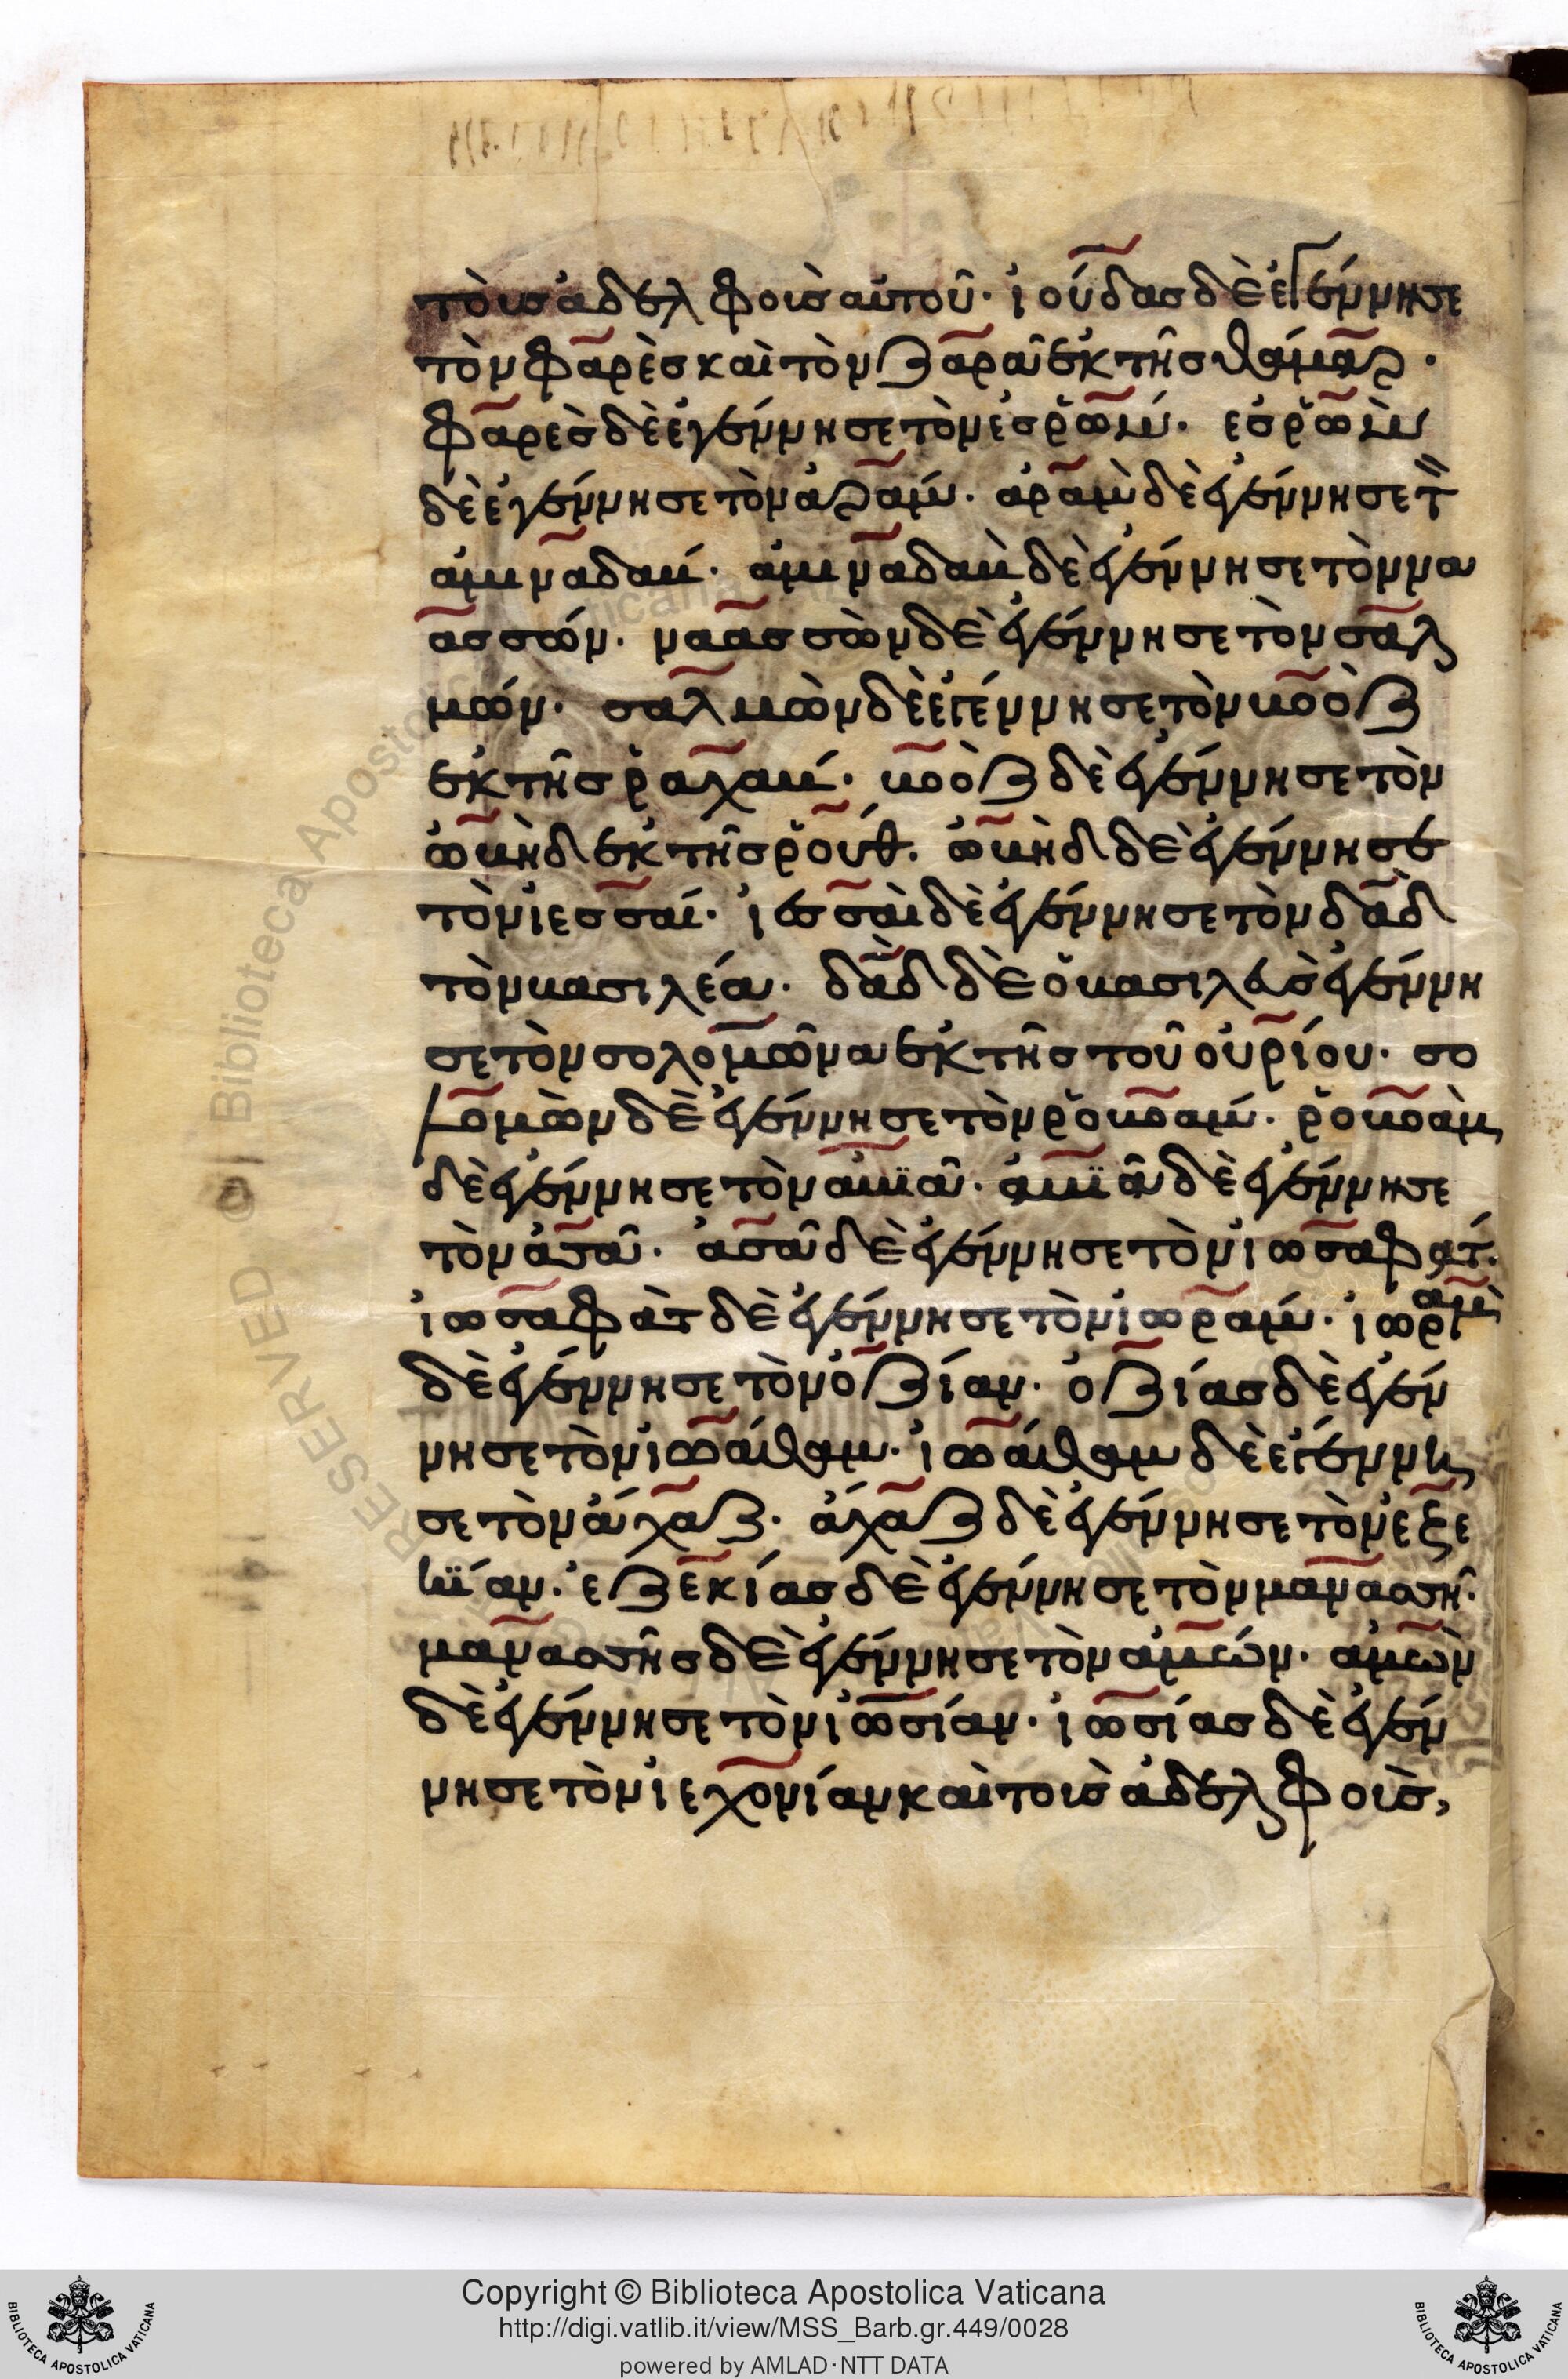 τοὺσ ἀδελφοὺσ αὐτοῦ· ἰούδασ δὲ ἐγέννησε
τὸν φαρὲσ καὶ τὸν ζαρᾶ ἐκ τῆσ θάμαρ·
φαρὲσ δὲ ἐγέννησε τὸν ἐσρώμ· ἐσρὼμ
δὲ ἐγέννησε τὸν ἀράμ· ἀρὰμ δὲ ἐγέννησε τ̀
ἀμιναδάμ· ἀμιναδὰμ δὲ ἐγέννησε τὸν να
ασσών· ναασσὼν δὲ ἐγέννησε τὸν σαλ
μών· σαλμὼν δὲ ἐγέννησε τὸν βοὸζ
ἐκ τῆσ ῥαχάβ· βοὸζ δὲ ἐγέννησε τὸν
ὠβὴδ ἐκ τῆσ ῥούθ· ὠβὴδ δὲ ἐγέννησε
τὸν ἰεσσαί· ἰεσσαὶ δὲ ἐγέννησε τὸν δαδ
τὸν βασιλέα· δαδ δὲ ὁ βασιλεὺσ ἐγέννη
σε τὸν σολομῶνα ἐκ τῆσ τοῦ οὐρίου· σο
λομὼν δὲ ἐγέννησε τὸν ῥοβοάμ· ῥοβοὰμ
δὲ ἐγέννησε τὸν ἀβϊᾶ· ἀβϊᾶ δὲ ἐγέννησε
τὸν ἀσᾶ· ἀσᾶ δὲ ἐγέννησε τὸν ἰωσαφάτ·
ἰωσαφὰτ δὲ ἐγέννησε τὸν ἰωράμ· ἰωρὰμ
δὲ ἐγέννησε τὸν ὀζίαν· ὀζίασ δὲ ἐγέν
νησε τὸν ἰωάθαμ· ἰωάθαμ δὲ ἐγέννη
σε τὸν ἄχαζ· ἄχαζ δὲ ἐγέννησε τὸν ἐζε
κϊαν· ἐζεκίασ δὲ ἐγέννησε τὸν μανασσῆ·
μανασσῆσ δὲ ἐγέννησε τὸν ἀμών· ἀμὼν
δὲ ἐγέννησε τὸν ἰωσίαν· ἰωσίασ δὲ ἐγέν
νησε τὸν ἰεχονίαν καὶ τοὺσ ἀδελφοὺσ,
RESERVED © | Biblioteca Apostolica Vaticana
Copyright © Biblioteca Apostolica Vaticana
http://digi.vatlib.it/view/MSS_Barb.gr.449/0028
powered by AMLAD·NTT DATA
BIBLIOTECA APOSTOLICA VATICANA
BIBLIOTECA APOSTOLICA VATICANA